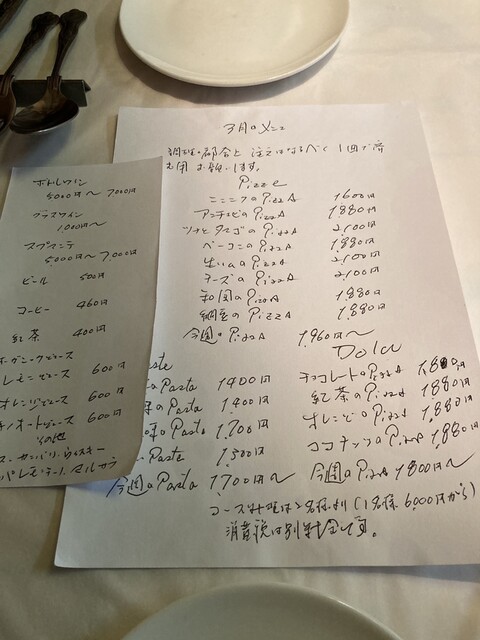 3月のメニュー
調理の都合上 注文はなるべく1回で済
お願いします。
Pizze
ニンニクのPizzA 1600円
アンチョビのPizzA 1,880円
ツナとタマゴのPizzA 2,100円
ベーコンのPizzA 1,880円
生ハムのPizzA 2,100円
チーズのPizzA 2,100円
和風のPizzA 1,880円
納豆のPizzA 1,880円
今週のPizzA 1,960円〜
ボトルワイン
5000円〜7000円
グラスワイン
1000円〜
スプマンテ
5,000円〜7,000円
ビール 500円
コーヒー 460円
紅茶 400円
オーガニックジュース
レモンジュース 600円
オレンジジュース 600円
キノットジュース 600円
その他
カンパリ、ウィスキー
パレルモ
Pasta 1400円
のPasta 1,400円
のPasta 1,700円
Paste 1,500円
今週のPasta 1700円〜
Dolci
チョコレートのPizzA 1,880円
紅茶のPizzA 1,880円
オレンジのPizzA 1,880円
ココナッツのPizzA 1,880円
今週のPizzA 1,800円〜
コース料理は2名様より(1名様6,000円から)
消費税は別料金です。